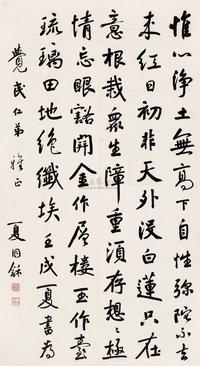 惟心淨土無高下自性彌陀不去
來紅日初非天外沒白蓮只在
意根栽衆生障重須存想想極
情忘眼豁開金作層樓玉作臺
琉璃田地絕纖埃壬戌夏書為
覺民仁弟雅正
夏同龢